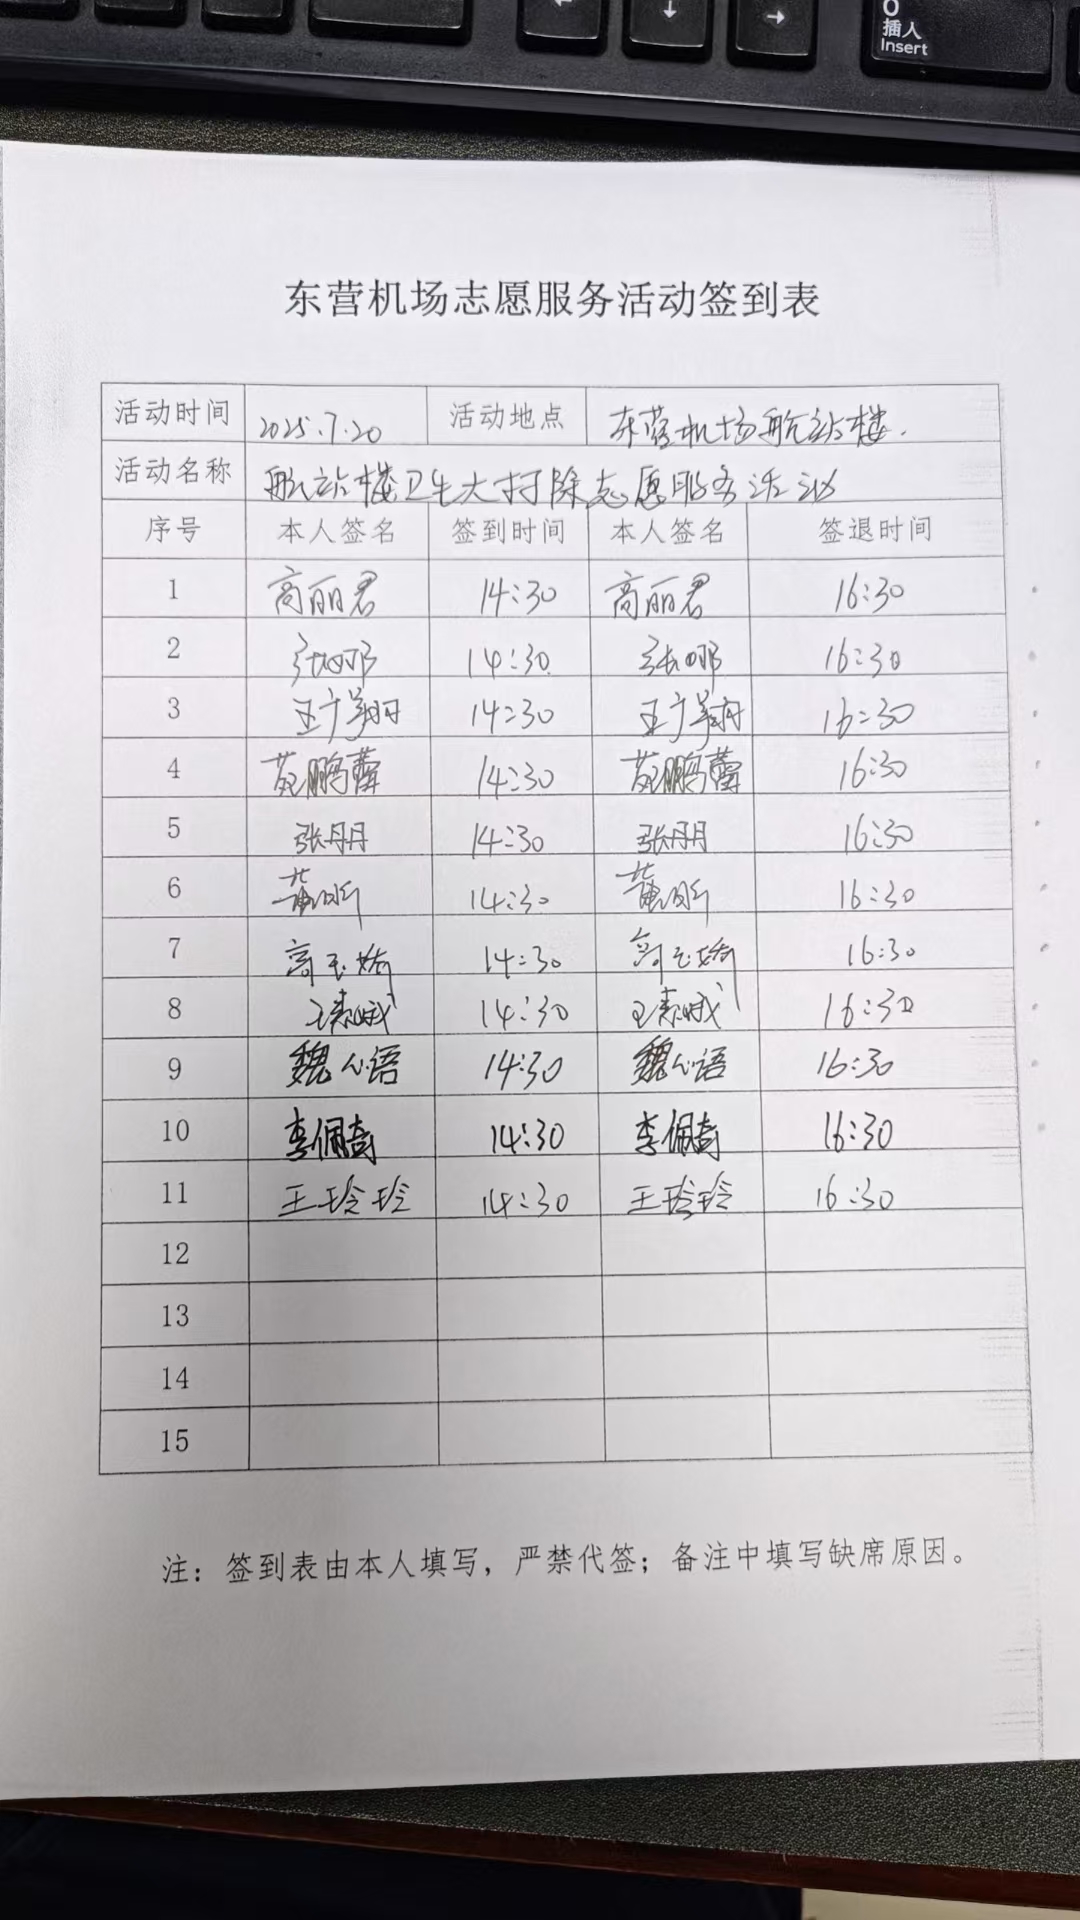 0
插入
Insert
东营机场志愿服务活动签到表
活动时间 2025.7.20 活动地点 东营机场航站楼.
活动名称 航站楼卫生大打除志愿服务活动
序号 本人签名 签到时间 本人签名 签退时间
1 高丽君 14:30 高丽君 16:30
2 张娜 14:30 张娜 16:30
3 王广翔 14:30 王广翔 16:30
4 苑鹏蕾 14:30 苑鹏蕾 16:30
5 张丹丹 14:30 张丹丹 16:30
6 黄昕 14:30 黄昕 16:30
7 高玉娇 14:30 高玉娇 16:30
8 王素娥 14:30 王素娥 16:30
9 魏心语 14:30 魏心语 16:30
10 李佩奇 14:30 李佩奇 16:30
11 王玲玲 14:30 王玲玲 16:30
12
13
14
15
注：签到表由本人填写，严禁代签；备注中填写缺席原因。